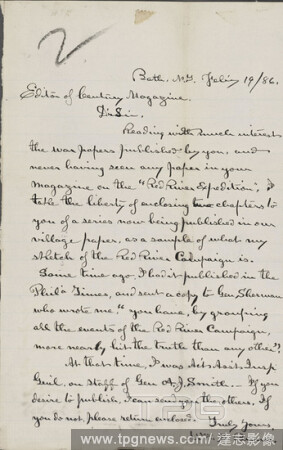 2
Bath, N.Y. Feb'y 19/86.
Editor of Century Magazine.
D'r Sir.
Reading with much interest
the war papers published by you, and
never having seen any paper in your
magazine on the "Red River Expedition", I
take the liberty of enclosing two chapters to
you of a series now being published in our
village paper, as a sample of what my
sketch of the Red River Campaign is.
Some time ago, I had it published in the
Phil'a Times, and sent a copy to Gen Sherman
who wrote me, "you have, by grouping
all the events of the Red River Campaign,
more nearly hit the truth than any other."
At that time, I was Act. Asst. Insp
Genl, on staff of Gen A.J. Smith. If you
desire to publish, I can send you the others. If
you do not, please return enclosed.
Truly Yours,
www.tpgnews.com/達志影像